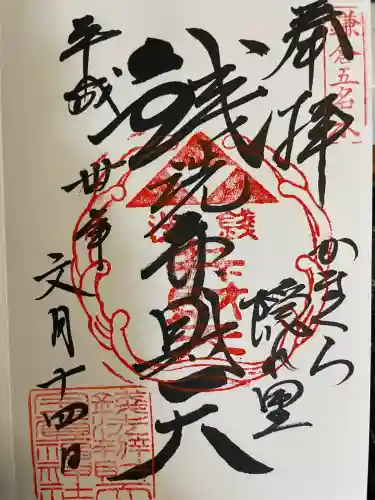 奉拝
鎌倉五名水
かまくら
隠れ里
銭洗弁財天
平成卅年
文月十四日